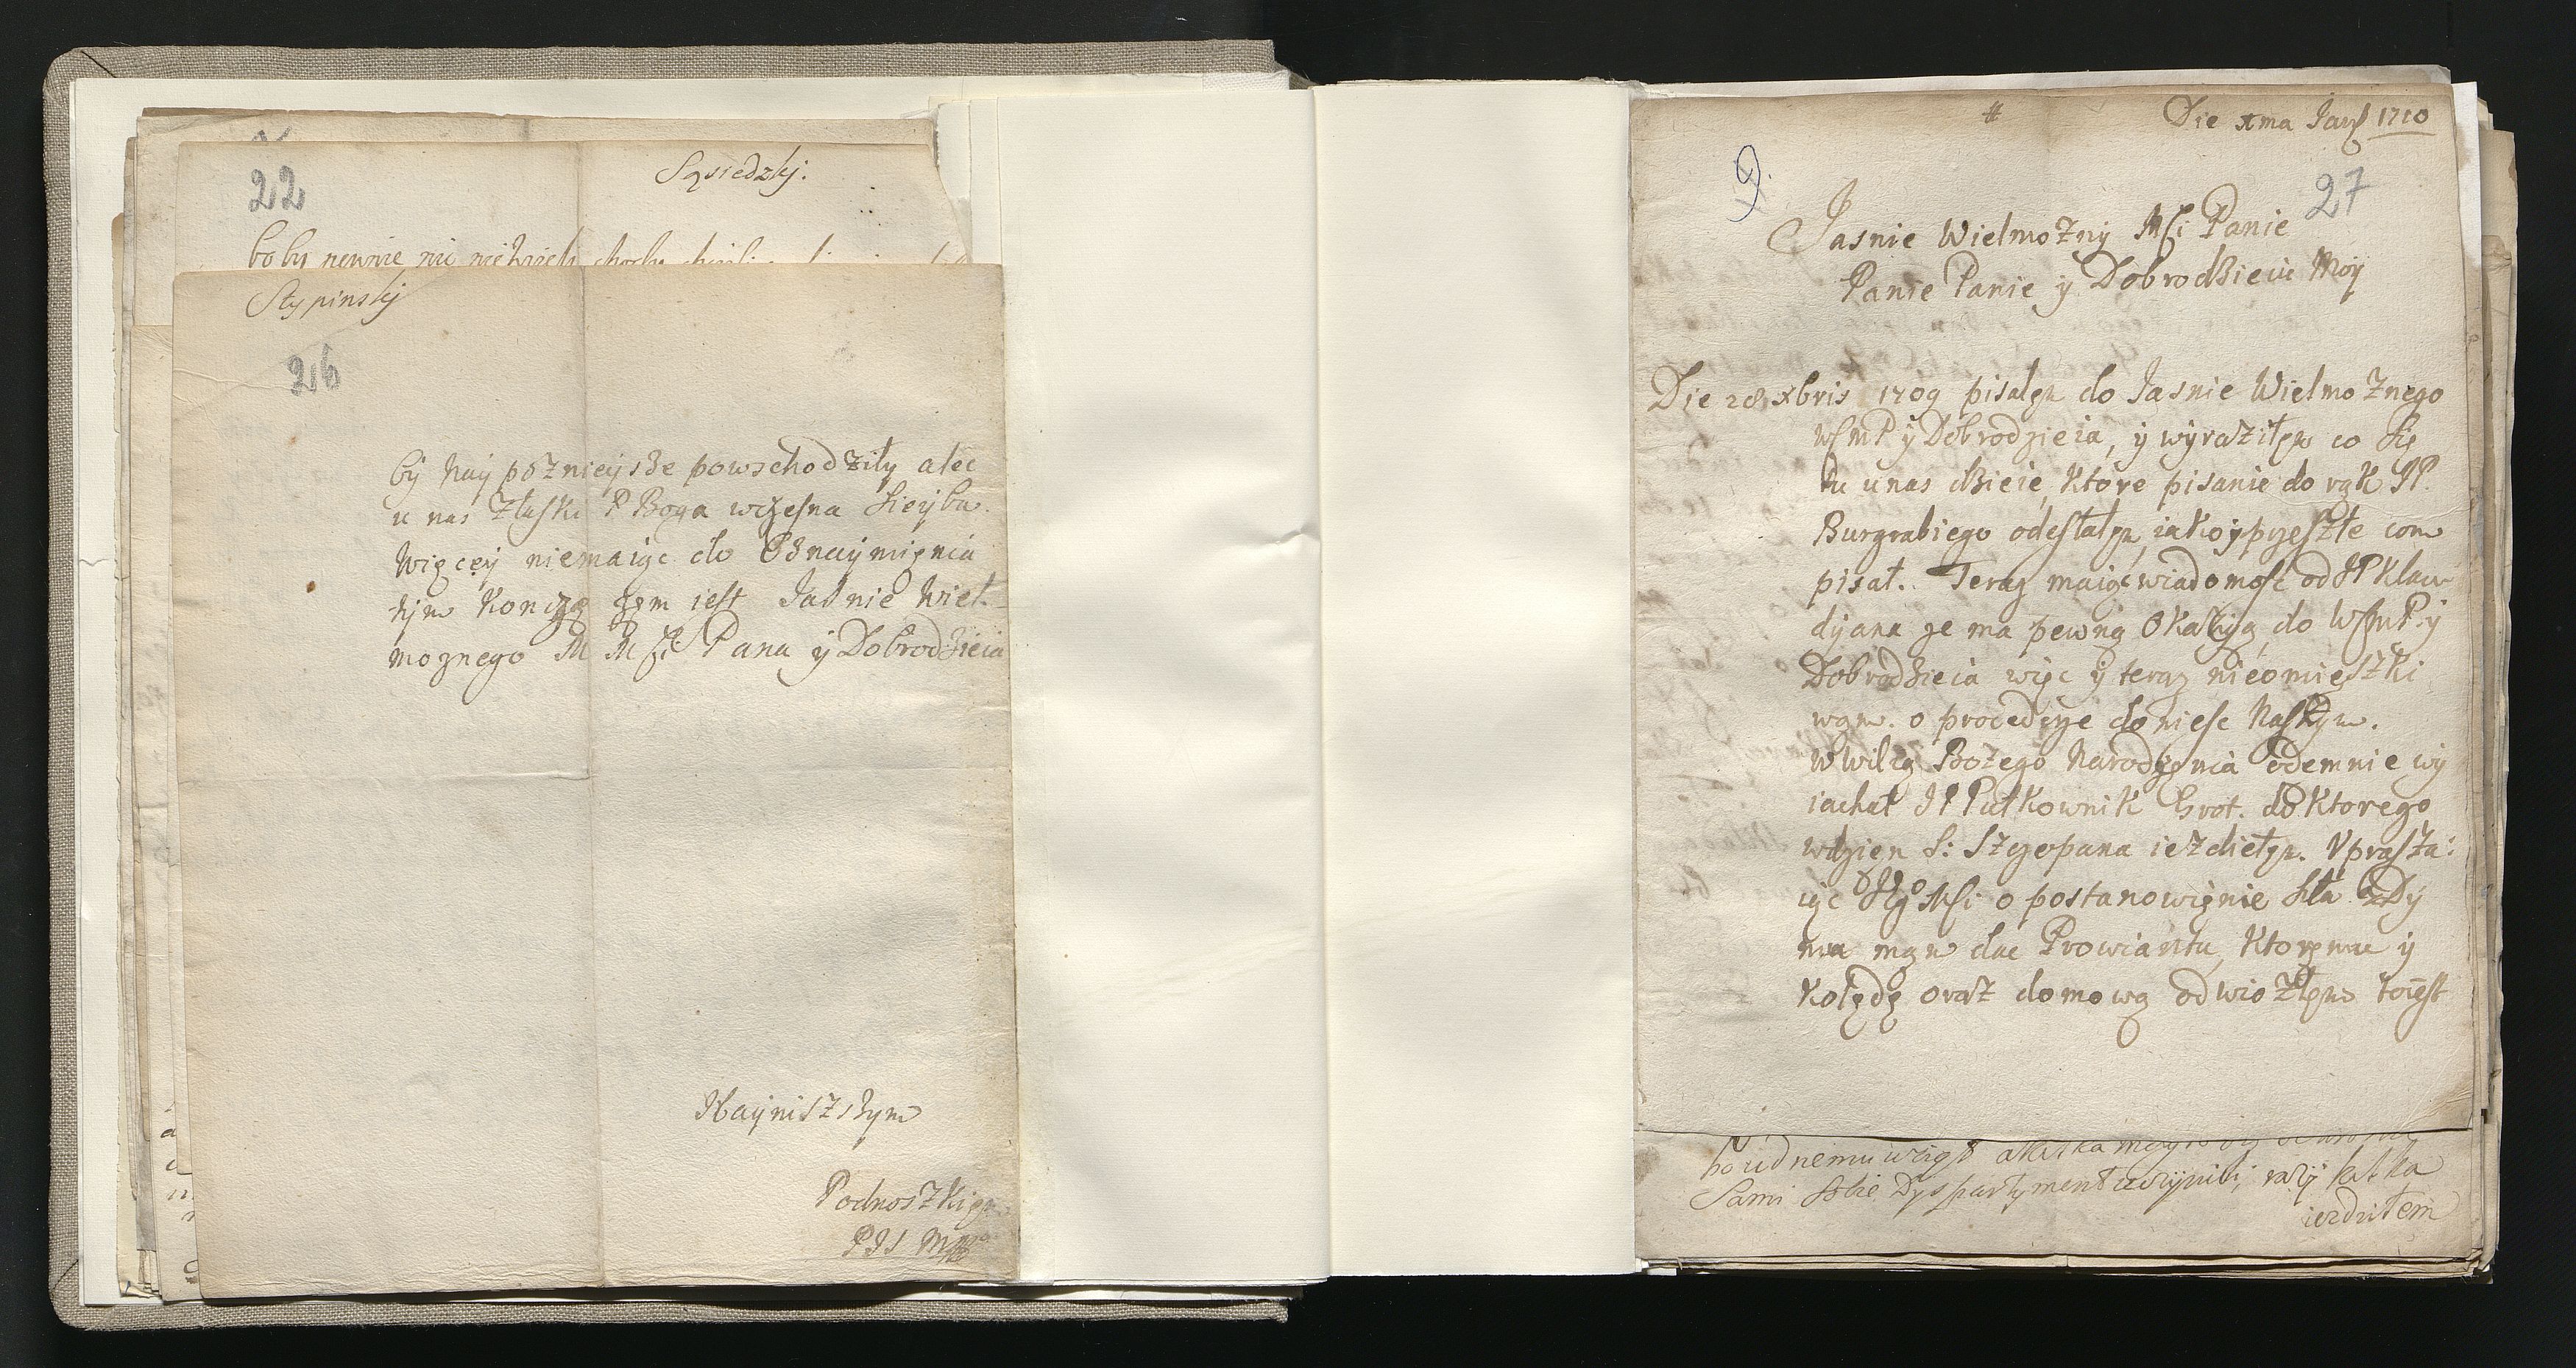 22
Sąsiedzkj.
boby pewnie nic
Stypinskj
26
by Nay poznieysze powschodziły alec
u nas złaski P Boga wczesna Sieyba.
Więcey niemaiąc do Oznaymięnia
tym Konczę zem iest Jasnie Wiel-
moznego M Mści Pana y Dobrodzieia
Nayniszszym
Podnoszkiem
PJS
#
Die xma Jan 1710
9.
27
Jasnie Wielmozny Mści Panie
Panie Panie y Dobrodzieiu Moy
Die 28 xbris 1709 pisałęm do Jasnie Wielmoznego
WsMP y Dobrodzieia, y wyraziłęm co się
tu unas dzieie, Ktore pisanie do rąk JP.
Burgrabiego odesłałęm iako y przeszłe com
pisał. Teraz maiąc wiadomosc od JP Klaw
dyana ze ma pewną Okazyią do WsMP y
Dobrodzieia więc y teraz nieomięszki
wam. o procedęrze doniesc Naszym.
Wwilią Bozego Narodzęnia odemnie wy
iachał JP Pułkownik Grot. do Ktorego
wdzięn S: Szczepana iezdiełęm. Vprasza:
iąc Mści o postanowięnie siła zDy
ma mam dac Prowiantu, Ktoręmu y
Kolędę oraz domową odwiozłęm toiest
Sami sobie Dyspartyment uczynili, razy kilka
iezdziłem